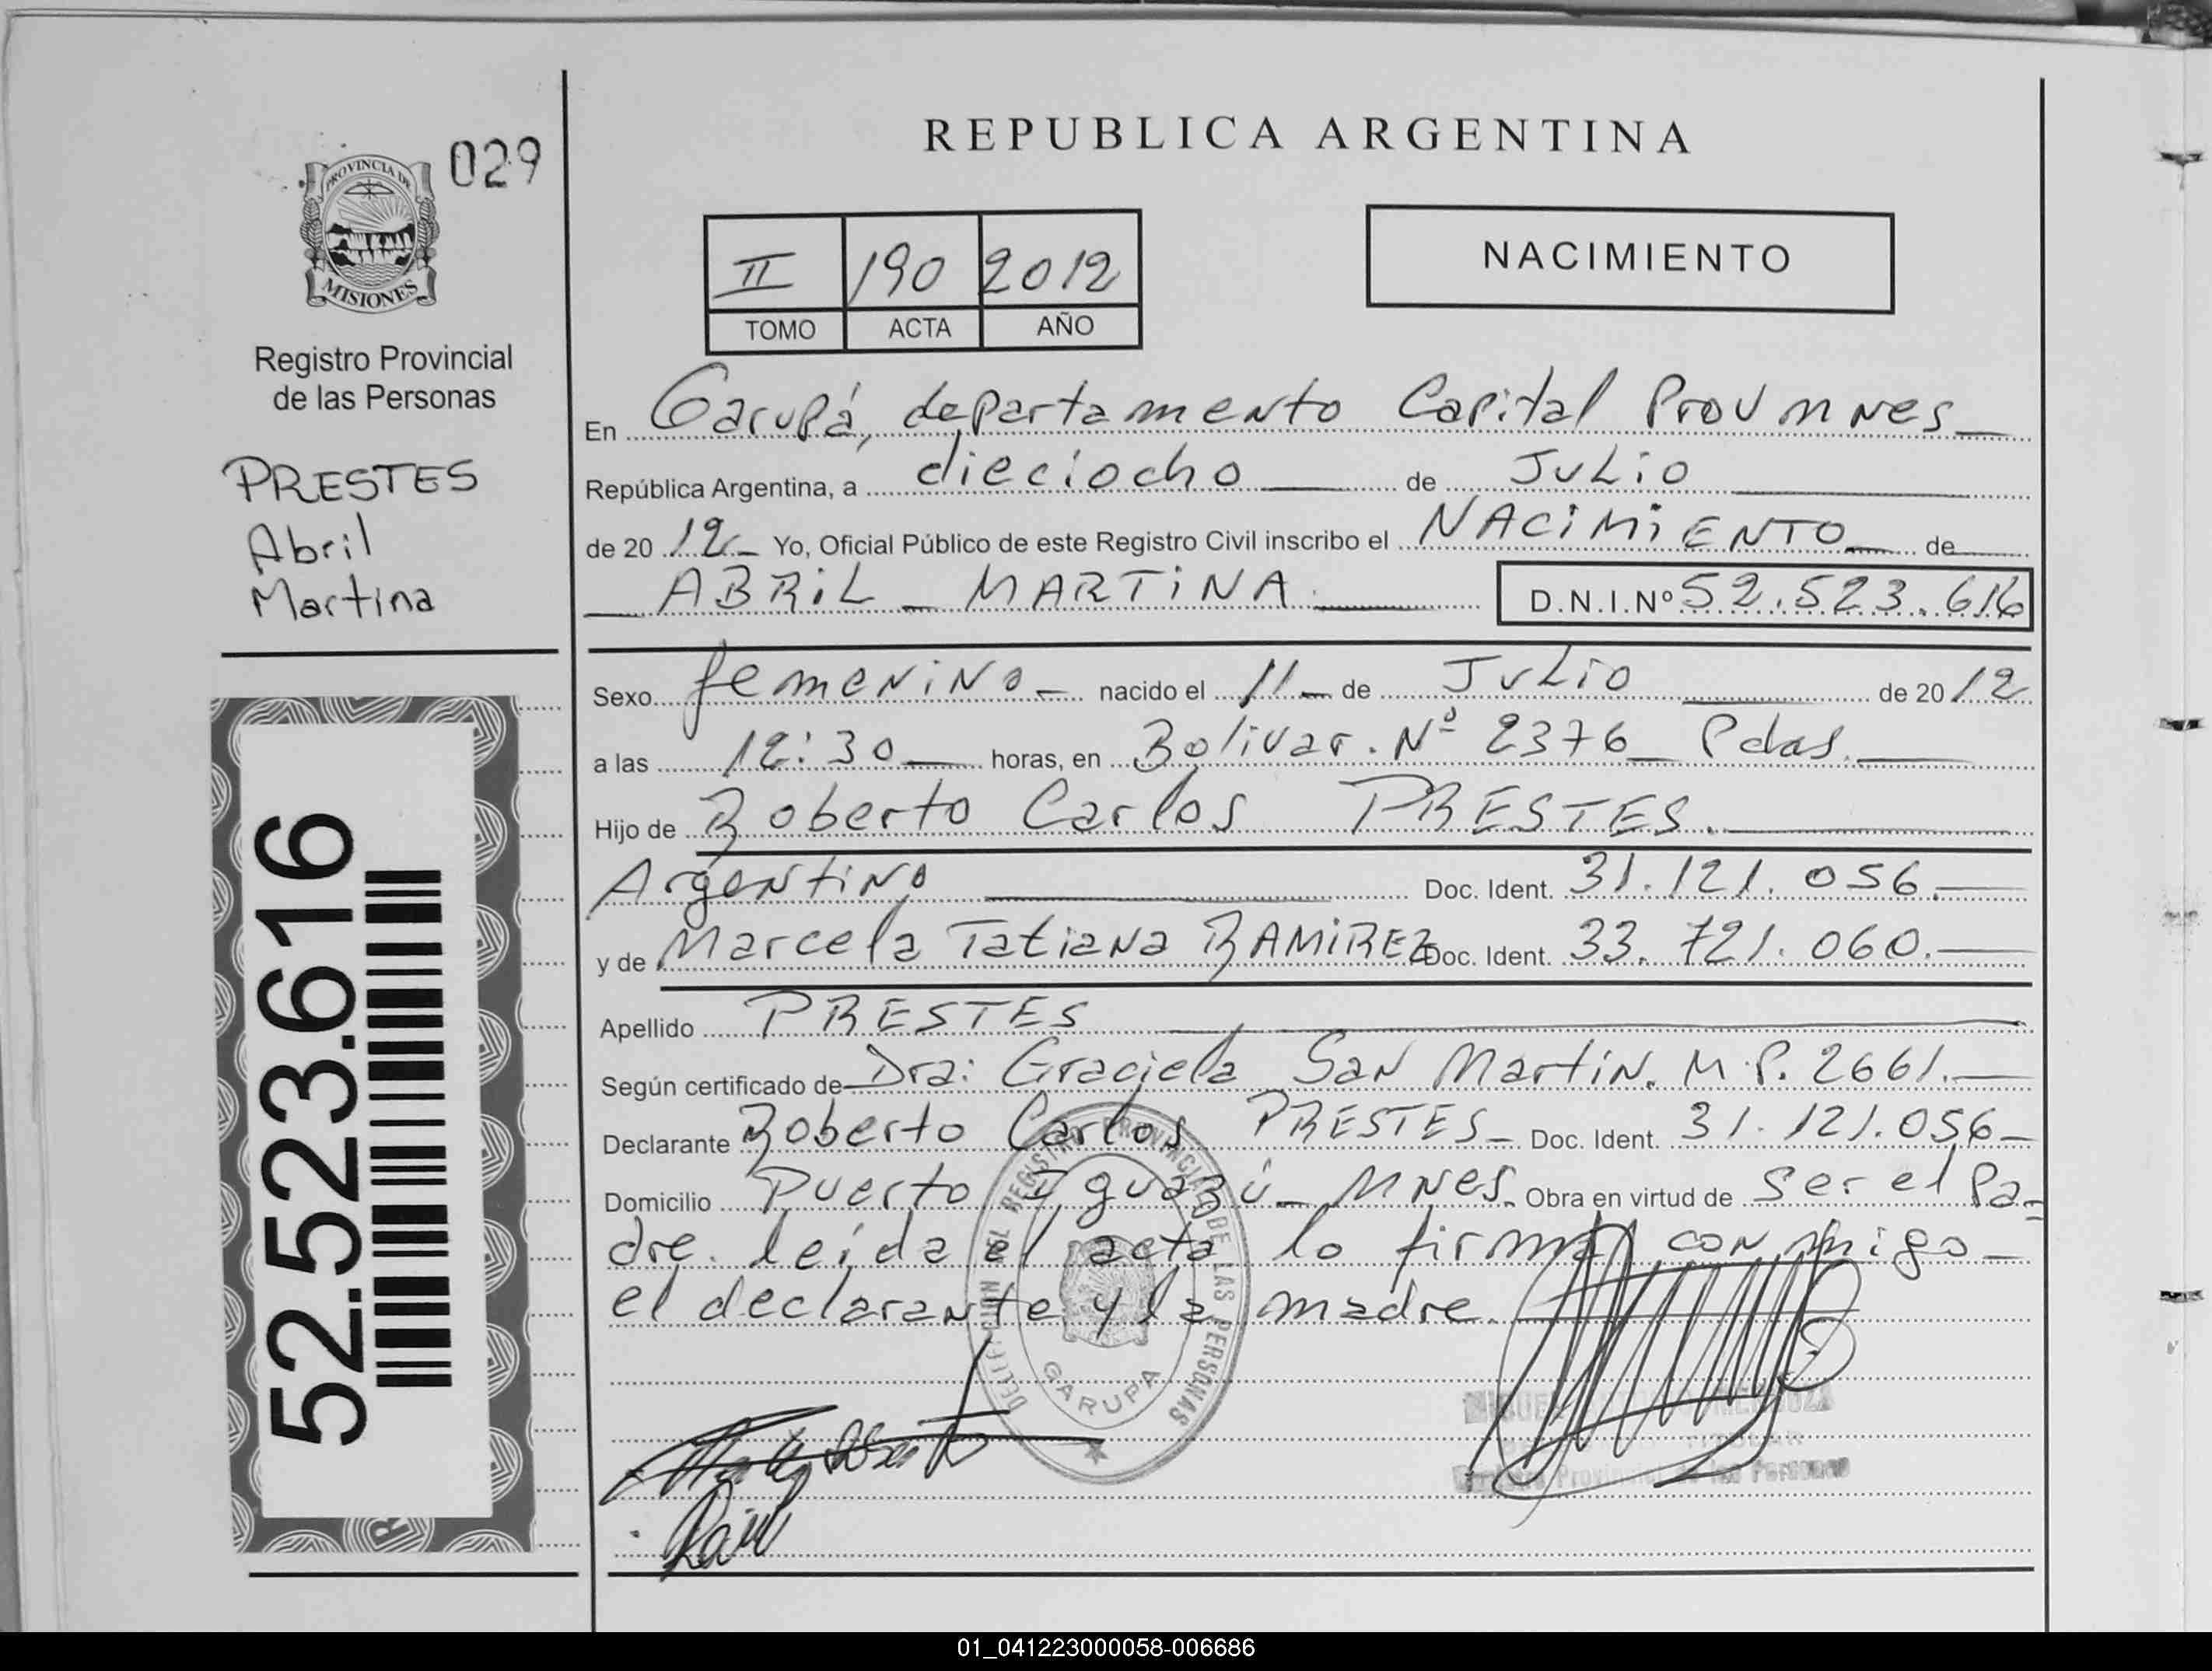 029
PROVINCIA DE
MISIONES
Registro Provincial
de las Personas
PRESTES
Abril
Martina
52.523.616
REPUBLICA ARGENTINA
II 190 2012
TOMO ACTA AÑO
NACIMIENTO
En Garupá, departamento Capital Prov Mnes
República Argentina, a dieciocho de Julio
de 2012 Yo, Oficial Público de este Registro Civil inscribo el NACIMIENTO de
ABRIL MARTINA D.N.I.Nº 52.523.616
Sexo femenino nacido el 11 de Julio de 2012
a las 12:30 horas, en Bolivar. Nº 2376 Pdas.
Hijo de Roberto Carlos PRESTES.
Argentino Doc. Ident. 31.121.056.
y de Marcela Tatiana RAMIREZ Doc. Ident. 33.721.060.
Apellido PRESTES
Según certificado de Dra: Graciela San Martin. M.P. 2661.
Declarante Roberto Carlos PRESTES Doc. Ident. 31.121.056
Domicilio Puerto Iguazú Mnes. Obra en virtud de Ser el Pa-
dre. leída el acta lo firma conmigo
el declarante y la madre.
DELEGACION DEL REGISTRO PROVINCIAL DE LAS PERSONAS
GARUPA
TITULAR
Registro Provincial de las Personas
01_041223000058-006686